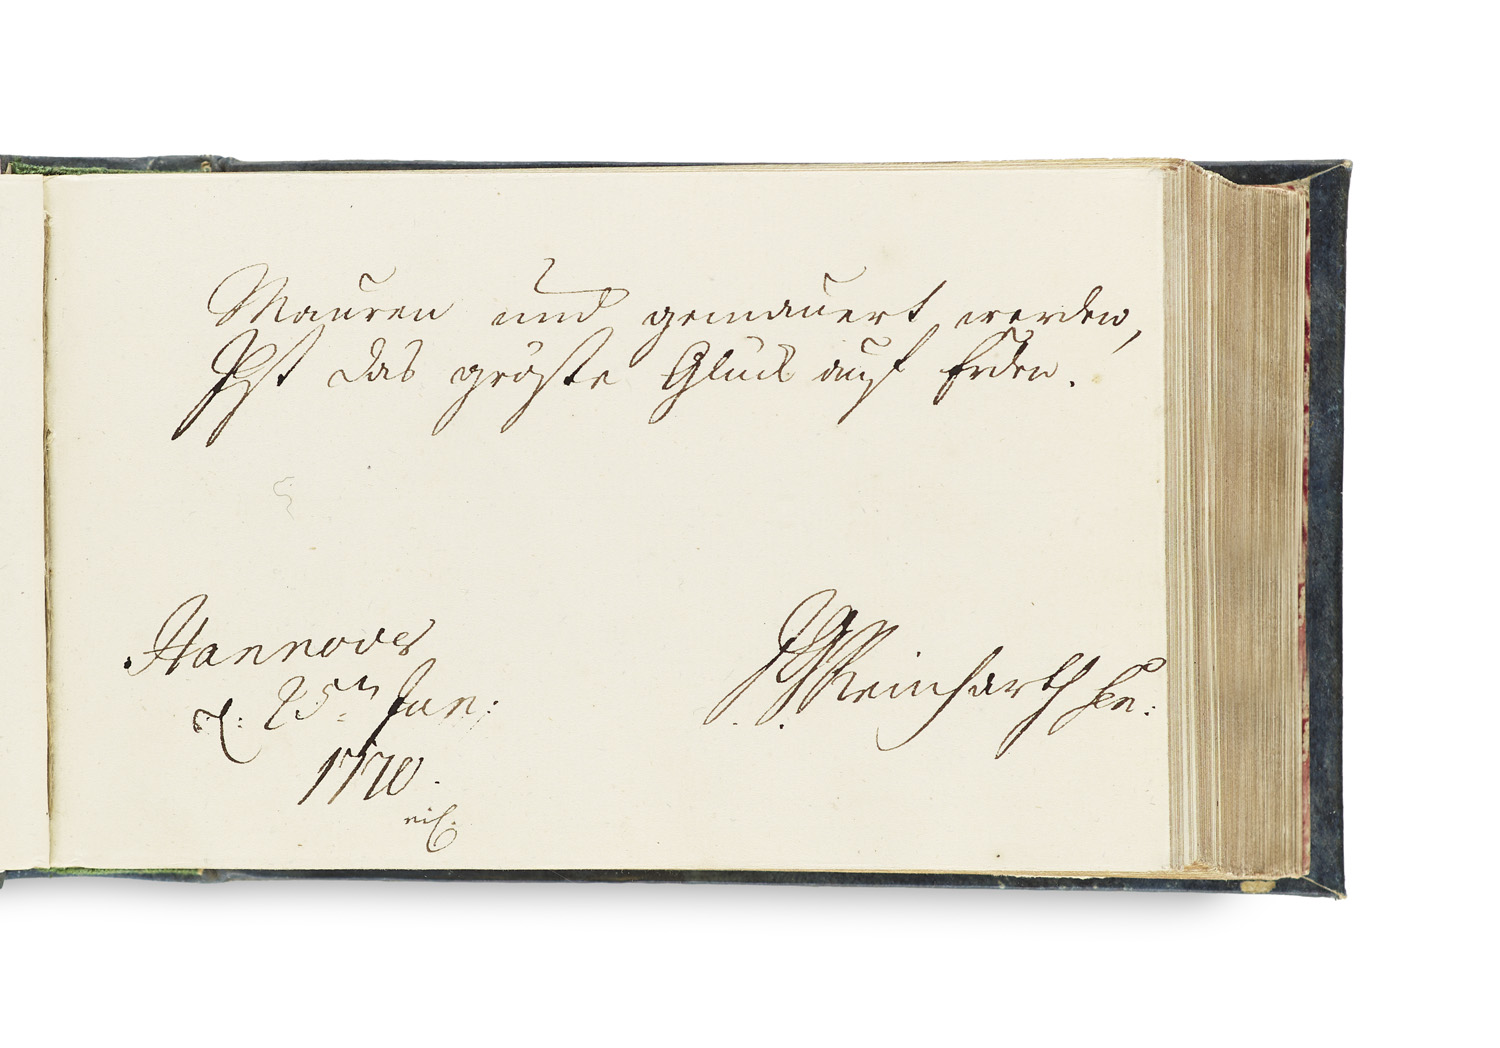 Mauren und gemauert werden,
Ist das gröste Glück auf Erden.
Hannover
d. 25ten Jan:
1770.
Reinharth Sen: